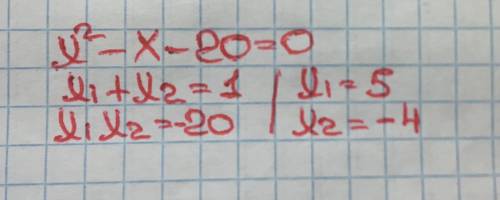 x² - x - 20 = 0
x₁ + x₂ = 1 | x₁ = 5
x₁ x₂ = -20 | x₂ = -4